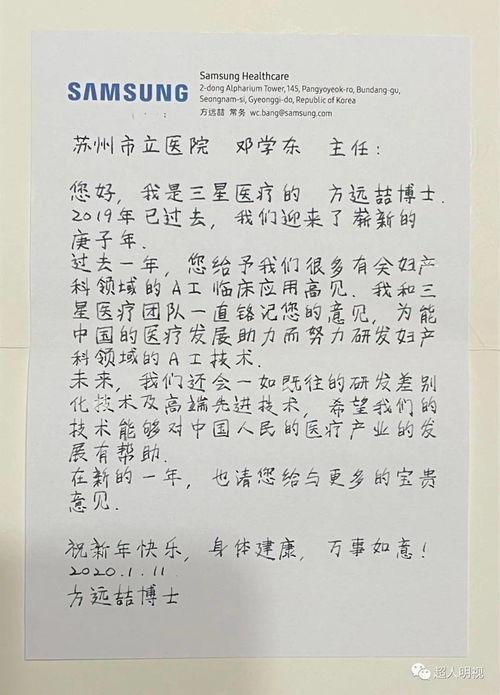 SAMSUNG
Samsung Healthcare
2-dong Alpharium Tower, 145, Pangyoyeok-ro, Bundang-gu,
Seongnam-si, Gyeonggi-do, Republic of Korea
方远喆 常务 wc.bang@samsung.com
苏州市立医院 邓学东 主任:
您好, 我是三星医疗的 方远喆博士.
2019年已过去, 我们迎来了崭新的
庚子年.
过去一年, 您给予我们很多有关妇产
科领域的AI临床应用高见. 我和三
星医疗团队一直铭记您的意见, 为能
中国的医疗发展助力而努力研发妇产
科领域的AI技术.
未来, 我们还会一如既往的研发差别
化技术及高端先进技术, 希望我们的
技术能够对中国人民的医疗产业的发
展有帮助.
在新的一年, 也请您给与更多的宝贵
意见.
祝新年快乐, 身体建康, 万事如意!
2020.1.11
方远喆博士
超人明视